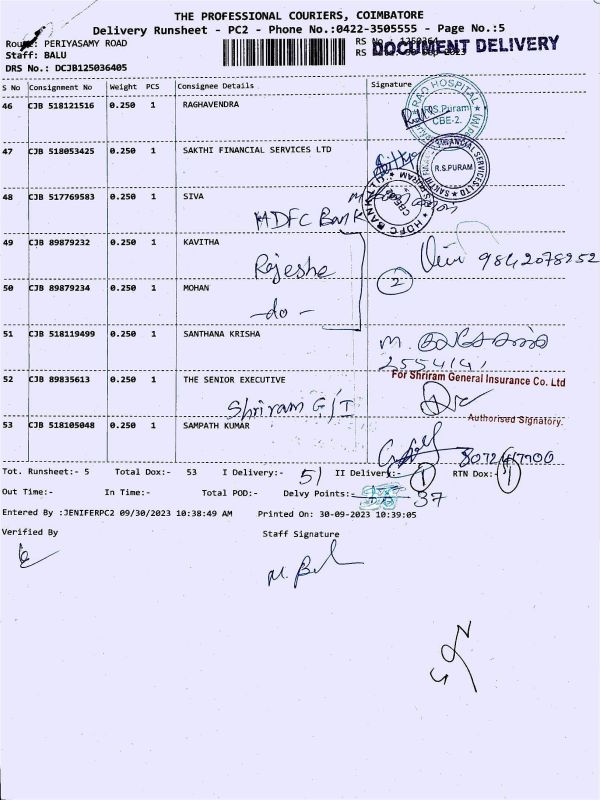 THE PROFESSIONAL COURIERS, COIMBATORE
Delivery Runsheet - PC2 - Phone No.:0422-3505555 - Page No.:5
Route: PERIYASAMY ROAD
Staff: BALU
DRS No.: DCJB125036405
RS No
RS
DOCUMENT DELIVERY
S No Consignment No Weight PCS Consignee Details Signature
46 CJB 518121516 0.250 1 RAGHAVENDRA
RAO HOSPITAL
R.S.Puram
CBE-2.
47 CJB 518053425 0.250 1 SAKTHI FINANCIAL SERVICES LTD
R.S.PURAM
48 CJB 517769583 0.250 1 SIVA
HDFC Bank
HDFC BANK
CBE
49 CJB 89879232 0.250 1 KAVITHA
Rajeshe
9842078952
50 CJB 89879234 0.250 1 MOHAN
2
- do -
51 CJB 518119499 0.250 1 SANTHANA KRISHA
52 CJB 89835613 0.250 1 THE SENIOR EXECUTIVE
For Shriram General Insurance Co. Ltd
Shriram G/I
Authorised Signatory.
53 CJB 518105048 0.250 1 SAMPATH KUMAR
Tot. Runsheet:- 5 Total Dox:- 53 I Delivery:- 51 II Delivery:- 1 RTN Dox:- 1
Out Time:- In Time:- Total POD:- Delvy Points:- 37
Entered By :JENIFERPC2 09/30/2023 10:38:49 AM Printed On: 30-09-2023 10:39:05
Verified By Staff Signature